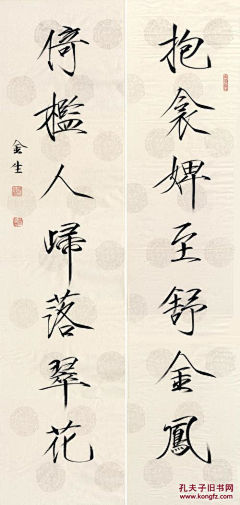 抱衾婢至舒金鳳
倚檻人歸落翠花
金生
孔夫子旧书网